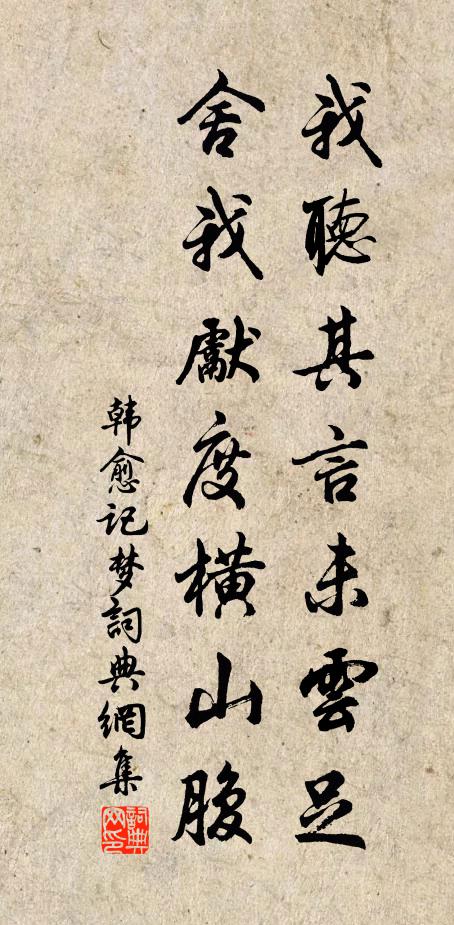 我聽其言未雲足
舍我獻度橫山腹
韩愈记梦詞典網集
詞典网印